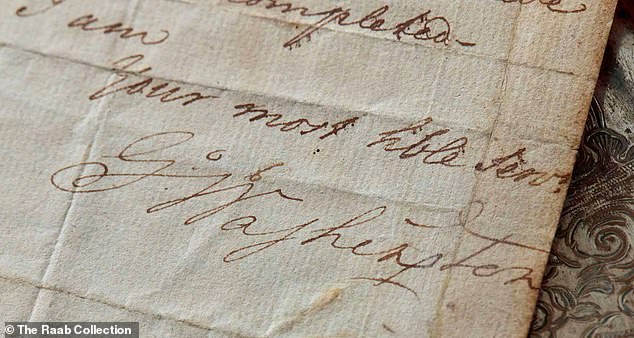 completed-
I am
Your most hble Serv.
Go Washington
© The Raab Collection